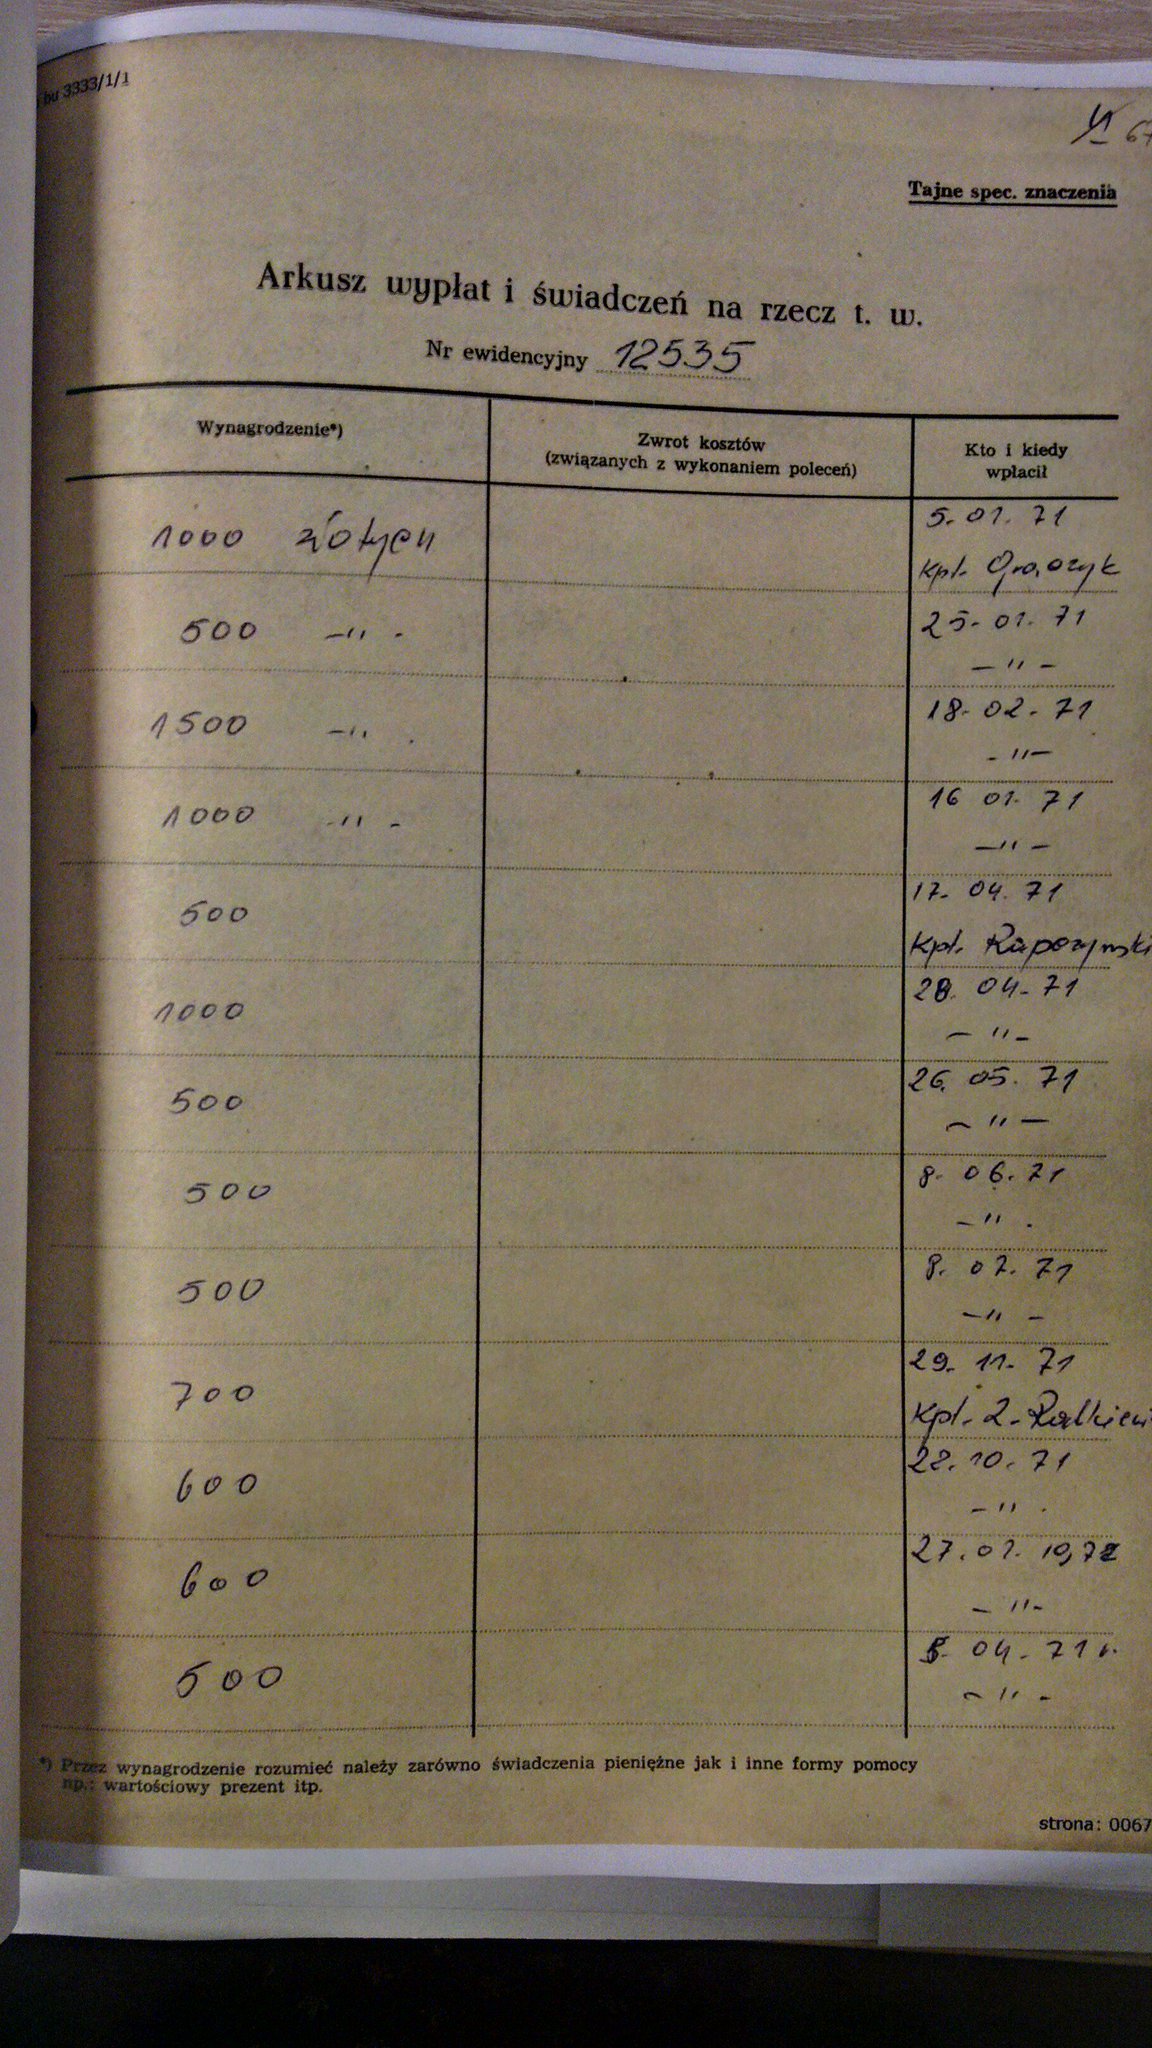 bu 3333/1/1
VI 67
Tajne spec. znaczenia
Arkusz wypłat i świadczeń na rzecz t. w.
Nr ewidencyjny 12535
Wynagrodzenie*)
Zwrot kosztów
(związanych z wykonaniem poleceń)
Kto i kiedy
wpłacił
1000 złotych
5. 01. 71
kpt.
500 —"-
25-01.71
—"—
1500 —"
18-02-71
-"—
1000 -"-
16 01. 71
—"—
500
17. 04. 71
kpt.
1000
28. 04-71
—"-
500
26. 05. 71
—"—
500
8. 06. 71
—"-
500
8. 07. 71
—"—
700
29. 11. 71
kpt.
600
22. 10. 71
—"-
600
27. 01. 1972
—"-
500
5. 04. 71 r.
—"-
*) Przez wynagrodzenie rozumieć należy zarówno świadczenia pieniężne jak i inne formy pomocy
np.: wartościowy prezent itp.
strona: 0067